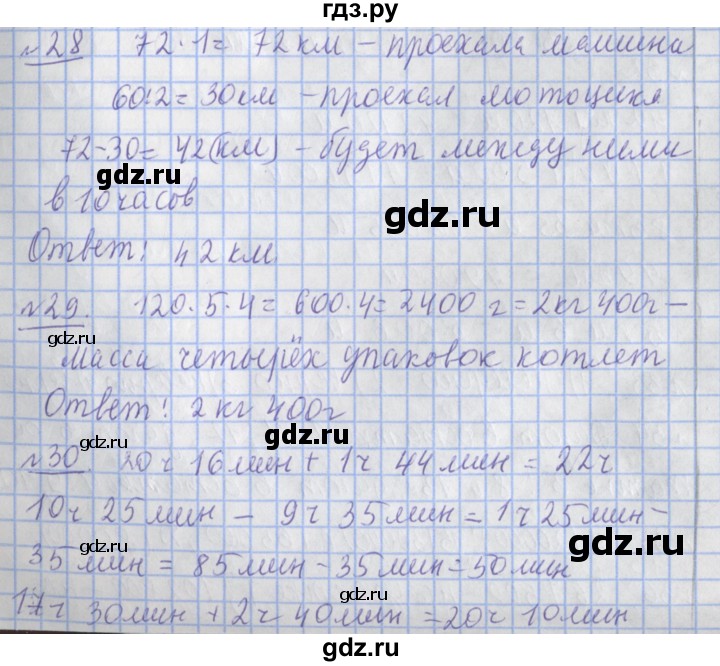 гдз.ру
№28 72·1= 72км – проехала машина
60:2=30км – проехал мотоцикл
72-30= 42(км) – будет между ними
gdz.ru
в 10 часов
gdz.ru
Ответ: 42 км.
№29. 120·5·4= 600·4=2400 г=2кг 400г –
gdz.ru
масса четырёх упаковок котлет
gdz.ru
Ответ: 2 кг 400г
gdz.ru
№30. 20ч 16мин + 1ч 44мин = 22ч
10ч 25мин – 9ч 35мин = 1ч 25мин –
gdz.ru
35мин = 85мин – 35мин = 50мин
gdz.ru
17ч 30мин + 2ч 40мин = 20ч 10мин
gdz.ru